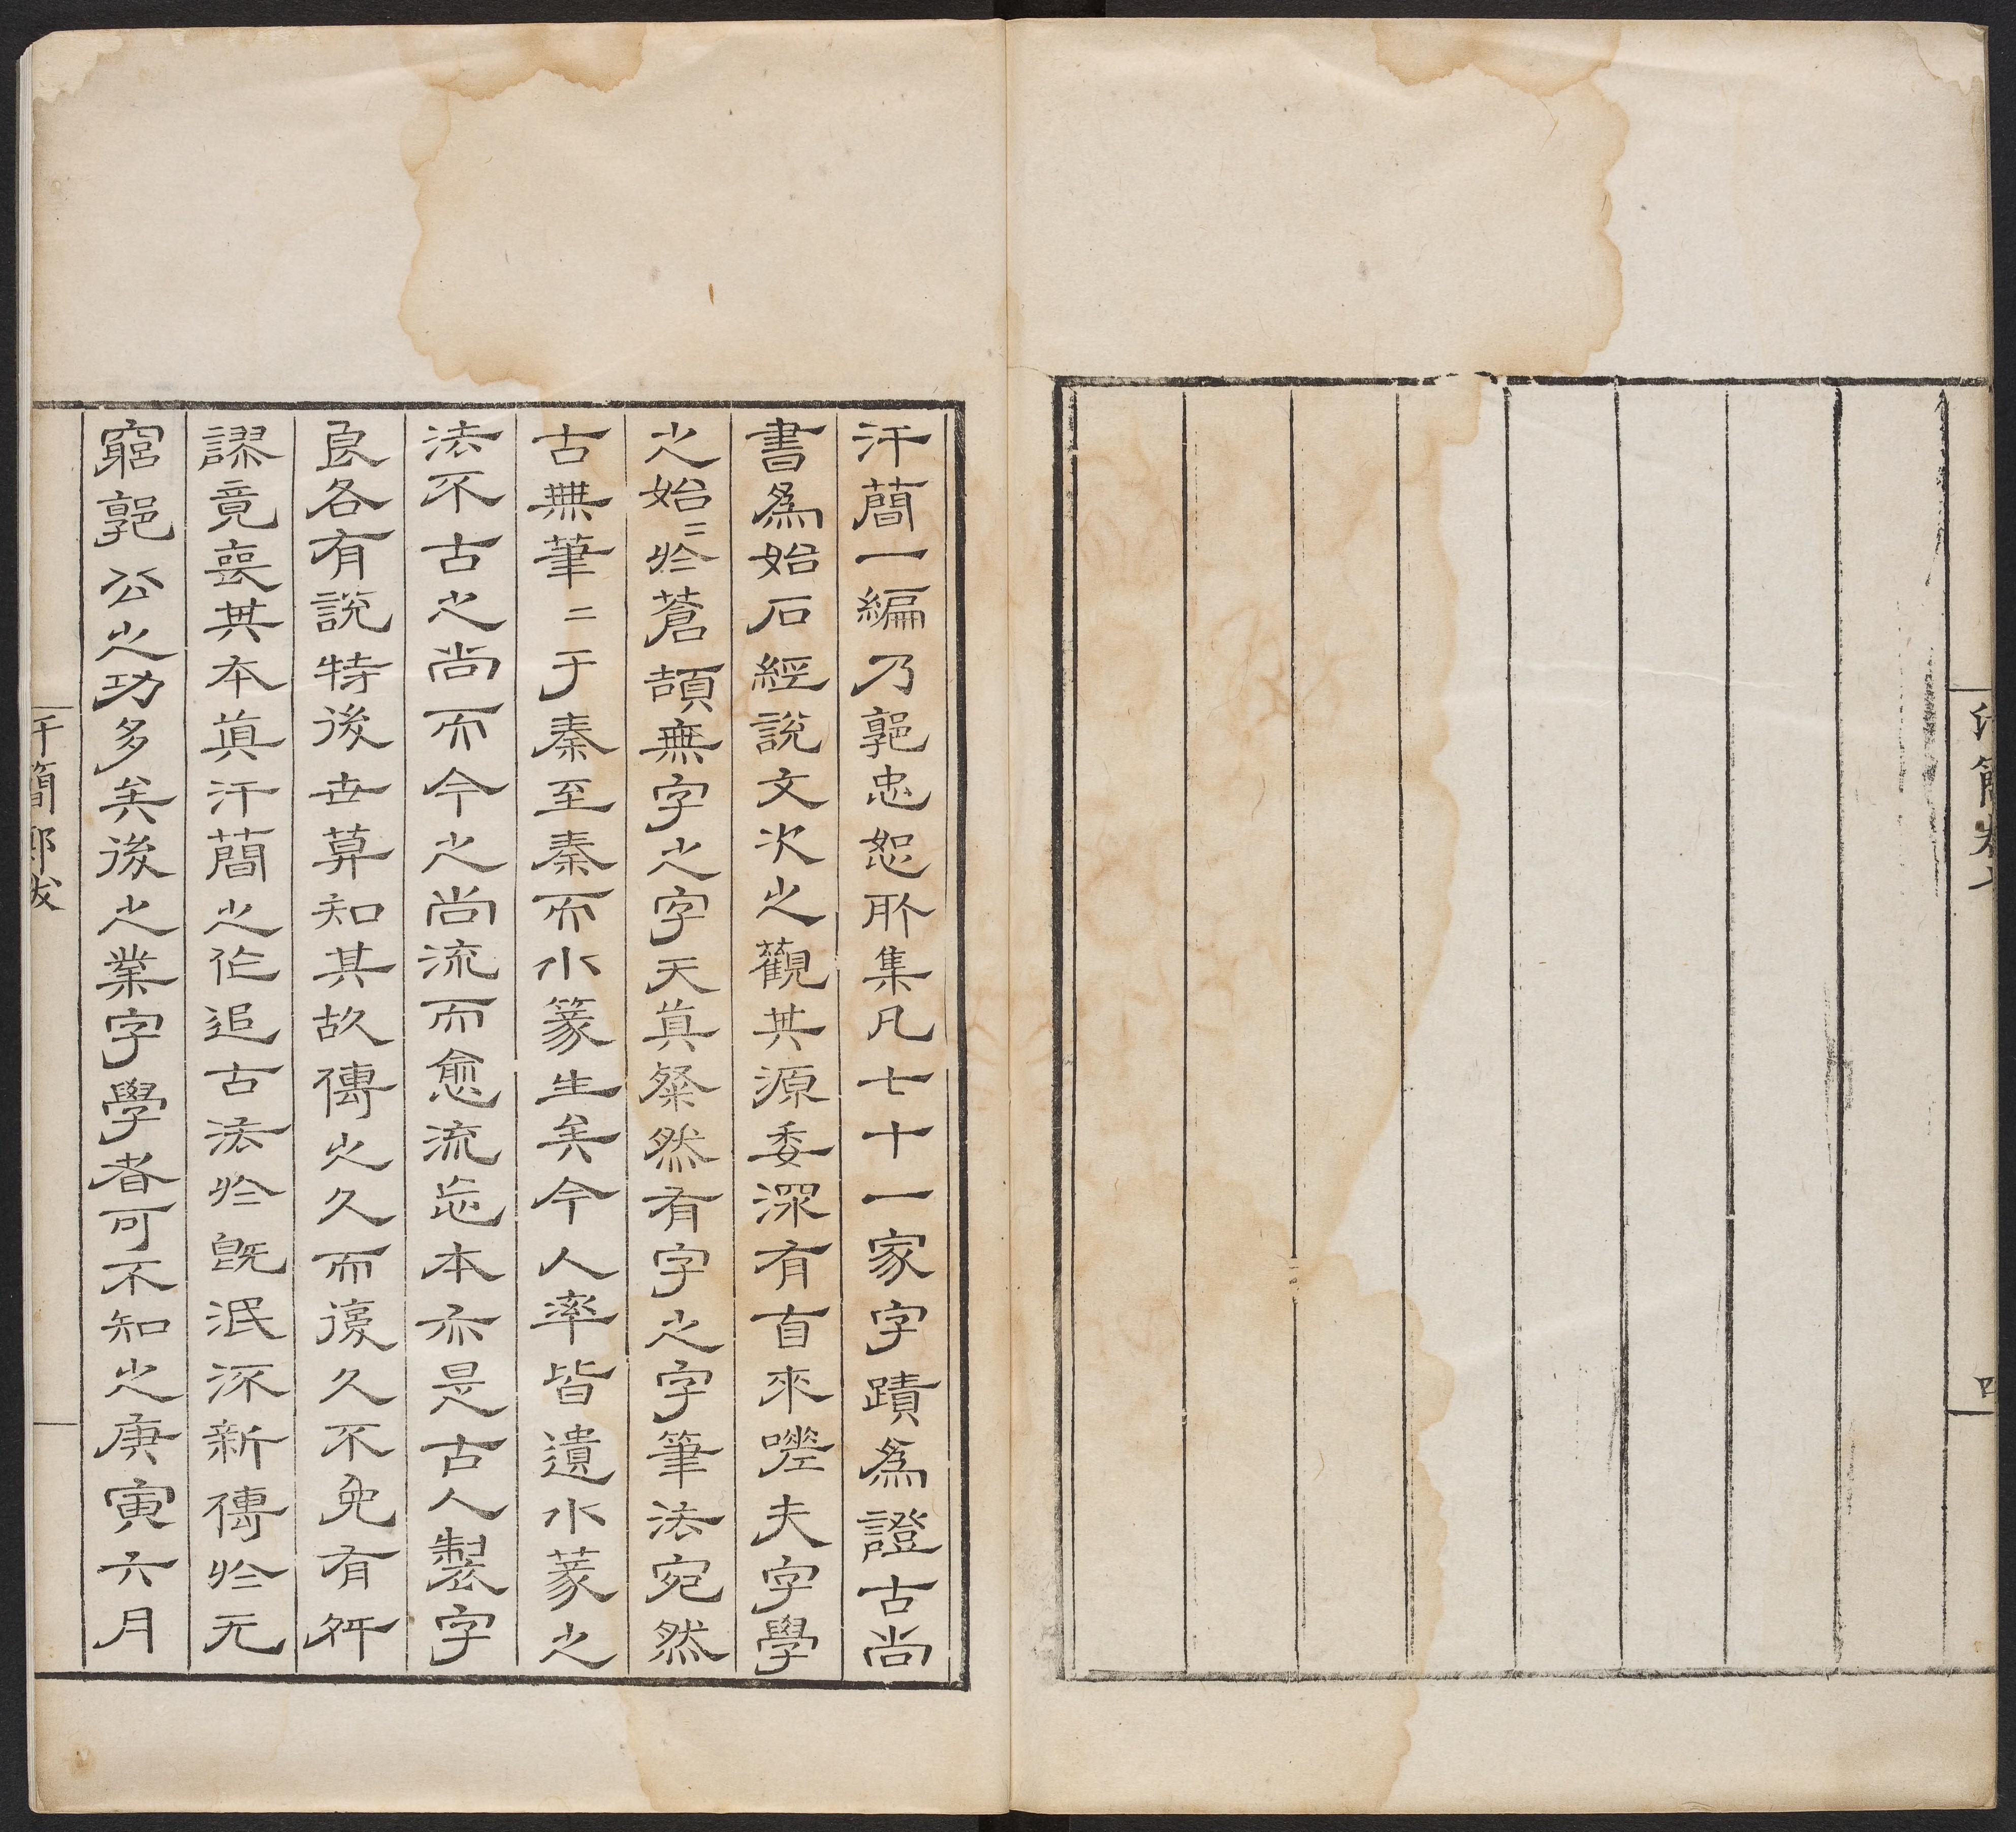 汗簡卷
四
汗簡一編乃郭忠恕所集凡七十一家字蹟爲證古尚
書爲始石經說文次之觀其源委深有自來嗟夫字學
之始二於蒼頡無字之字天眞粲然有字之字筆法宛然
古無筆二于秦至秦而小篆生矣今人率皆遺小篆之
法不古之尚而今之尚流而愈流忘本亦是古人製字
良各有說特後世莫知其故傳之久而復久不免有舛
謬竟喪其本眞汗簡之作追古法於旣泯添新傳於无
窮郭公之功多矣後之業字學者可不知之庚寅六月
汗簡跋